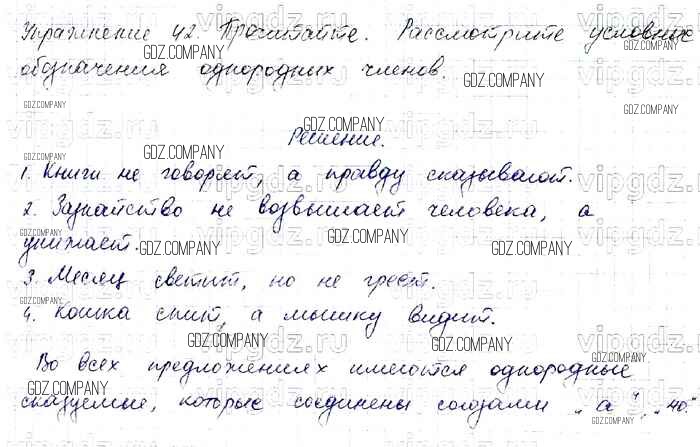 Упражнение 42. Прочитайте. Рассмотрите условные
обозначения однородных членов.
Решение.
1. Книги не говорят, а правду сказывают.
2. Зазнайство не возвышает человека, а
унижает.
3. Месяц светит, но не греет.
4. Кошка спит, а мышку видит.
Во всех предложениях имеются однородные
сказуемые, которые соединены союзами „а", „но"